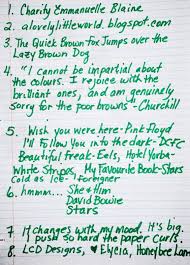 1. Charity Emmanuelle Blaine
2. alovelylittleworld.blogspot.com
3. The Quick Brown Fox Jumps over the
Lazy Brown Dog
4. "I cannot be impartial about
the colours. I rejoice with the
brilliant ones, and am genuinely
sorry for the poor browns" -Churchill
5. Wish you were here - Pink Floyd
I'll follow you into the dark - DCFC
Beautiful freak - Eels, Hotel Yorba -
White Stripes, My Favourite Book - Stars
Cold as Ice - Foreigner
6. hmmm... She & Him
David Bowie
Stars
7. It changes with my mood. It's big.
I push so hard the paper curls.
8. LCD Designs, ♥ Elycia, Honeybee Lane